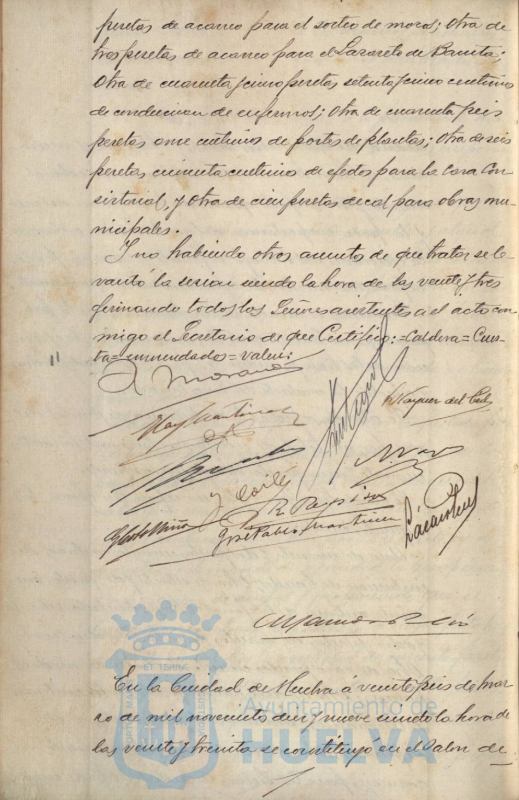 pesetas de acarreo para el sorteo de mozos; otra de
tres pesetas de acarreo para el Lazareto de Punta;
Otra de cuarenta y cinco pesetas setenta y cinco centimos
de conduccion de enfermos; otra de cuarenta y seis
pesetas once centimos de portes de plantas; Otra de seis
pesetas cincuenta centimos de efectos para la Casa Con-
sistorial, y otra de cien pesetas de cal para obras mu-
nicipales.
Y no habiendo otros asuntos de que tratar se le-
vantó la sesion siendo la hora de las veinte y tres
firmando todos los Señores asistentes a el acto con-
migo el Secretario de que Certifico:=Caldera=Cues-
ta=enmendados=valen:
A Moreno
Vazquez del
José Pablo Martinez
En la Ciudad de Huelva á veinte y seis de mar-
zo de mil novecientos diez y nueve siendo la hora de
las veinte y treinta se constituyo en el Salon de
Ayuntamiento de
HUELVA